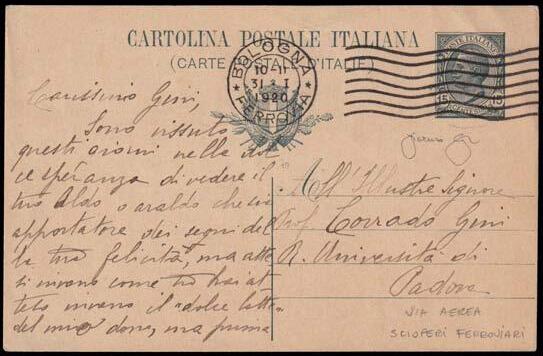 CARTOLINA POSTALE ITALIANA
(CARTE POSTALE D'ITALIE)
BOLOGNA
10-11
31 I
1920
FERROVIA
POSTE ITALIANE
15 15
Carissimo Gini,
Sono vissuto
questi giorni nella dol
ce speranza di vedere il
tuo Aldo o araldo che sia
apportatore dei segni del
la tua felicità, ma atte
si invano come tu hai at
teso invano il "dolce latte
del mio dono, ma prima
All'Illustre Signore
Prof. Corrado Gini
R. Università di
Padova
VIA AEREA
SCIOPERI FERROVIARI